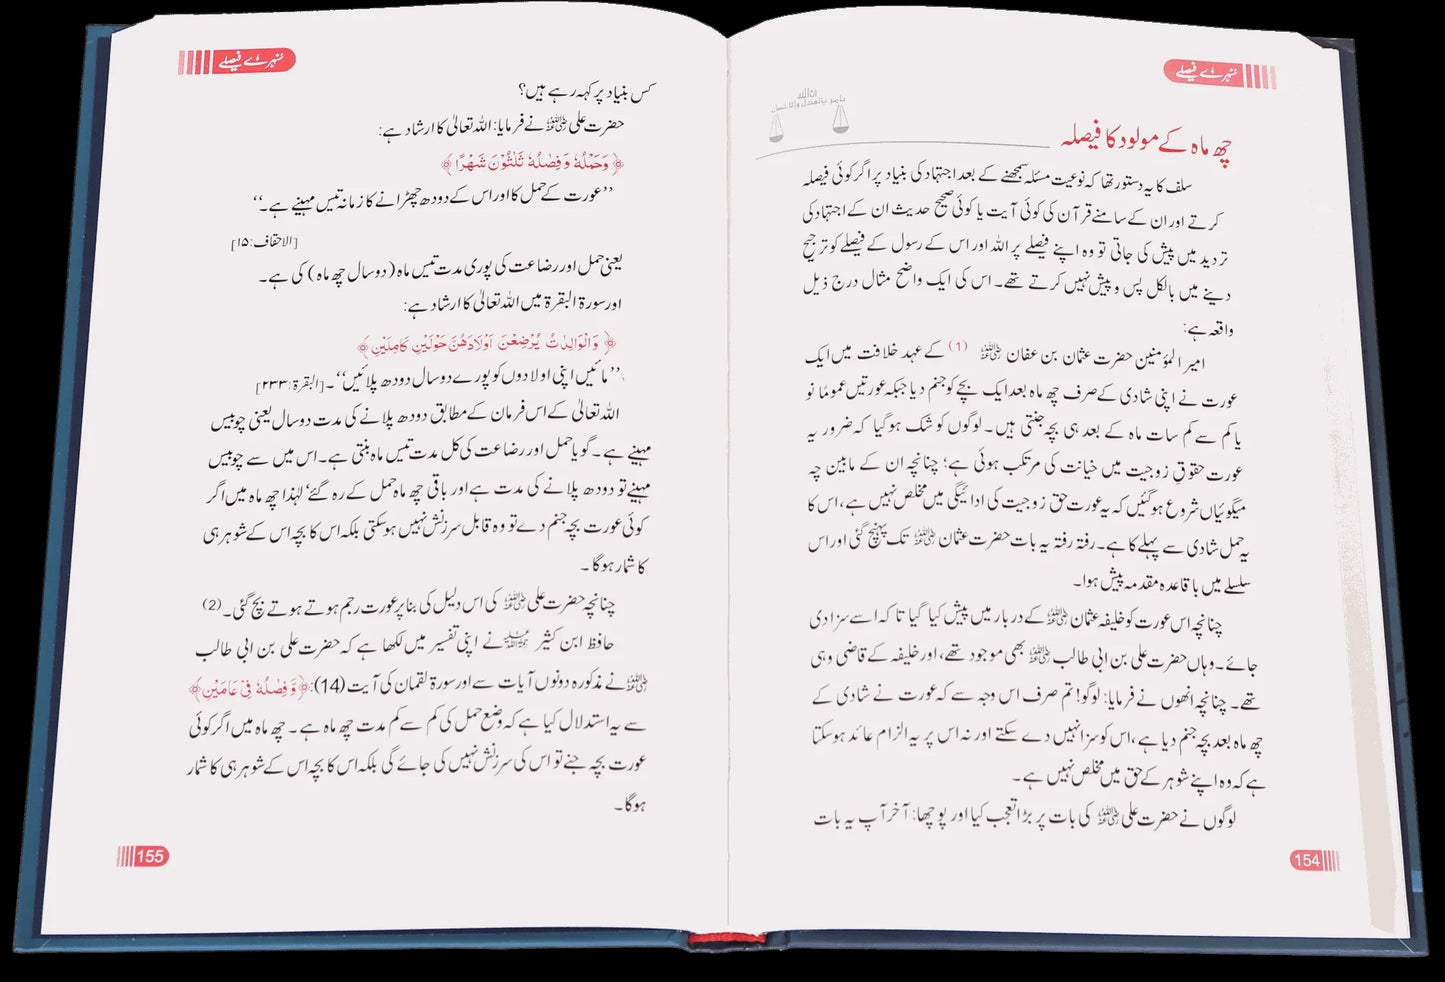 سنہرے فیصلے
چھ ماہ کے مولود کا فیصلہ
سلف کا یہ دستور تھا کہ نوعیت مسئلہ سمجھنے کے بعد اجتہاد کی بنیاد پر اگر کوئی فیصلہ
کرتے اور ان کے سامنے قرآن کی کوئی آیت یا کوئی صحیح حدیث ان کے اجتہاد کی
تردید میں پیش کی جاتی تو وہ اپنے فیصلے پر اللہ اور اس کے رسول کے فیصلے کو ترجیح
دینے میں بالکل پس و پیش نہیں کرتے تھے۔ اس کی ایک واضح مثال درج ذیل
واقعہ ہے:
امیر المؤمنین حضرت عثمان بن عفان ؓ (1) کے عہد خلافت میں ایک
عورت نے اپنی شادی کے صرف چھ ماہ بعد ایک بچے کو جنم دیا جبکہ عورتیں عموماً نو
یا کم سے کم سات ماہ کے بعد ہی بچہ جنتی ہیں۔ لوگوں کو شک ہوگیا کہ ضرور یہ
عورت حقوقِ زوجیت میں خیانت کی مرتکب ہوئی ہے؛ چنانچہ ان کے مابین چہ
میگوئیاں شروع ہوگئیں کہ یہ عورت حق زوجیت کی ادائیگی میں مخلص نہیں ہے، اس کا
یہ حمل شادی سے پہلے کا ہے۔ رفتہ رفتہ یہ بات حضرت عثمان ؓ تک پہنچ گئی اور اس
سلسلے میں باقاعدہ مقدمہ پیش ہوا۔
چنانچہ اس عورت کو خلیفہ عثمان ؓ کے دربار میں پیش کیا گیا تا کہ اسے سزا دی
جائے۔ وہاں حضرت علی بن ابی طالب ؓ بھی موجود تھے، اور خلیفہ کے قاضی وہی
تھے۔ چنانچہ انھوں نے فرمایا: لوگو! تم صرف اس وجہ سے کہ عورت نے شادی کے
چھ ماہ بعد بچہ جنم دیا ہے، اس کو سزا نہیں دے سکتے اور نہ اس پر یہ الزام عائد ہوسکتا
ہے کہ وہ اپنے شوہر کے حق میں مخلص نہیں ہے۔
لوگوں نے حضرت علی ؓ کی بات پر بڑا تعجب کیا اور پوچھا: آخر آپ یہ بات
154
سنہرے فیصلے
کس بنیاد پر کہہ رہے ہیں؟
حضرت علی ؓ نے فرمایا: اللہ تعالیٰ کا ارشاد ہے:
﴿ وَحَمْلُهُ وَفِصٰلُهُ ثَلٰثُوْنَ شَهْرًا ﴾
’’عورت کے حمل کا اور اس کے دودھ چھڑانے کا زمانہ تیس مہینے ہے۔‘‘
[الاحقاف: ۱۵]
یعنی حمل اور رضاعت کی پوری مدت تیس ماہ (دو سال چھ ماہ) کی ہے۔
اور سورۃ البقرۃ میں اللہ تعالیٰ کا ارشاد ہے:
﴿ وَالْوَالِدٰتُ يُرْضِعْنَ اَوْلَادَهُنَّ حَوْلَيْنِ كَامِلَيْنِ ﴾
’’مائیں اپنی اولادوں کو پورے دو سال دودھ پلائیں‘‘۔ [البقرۃ: ۲۳۳]
اللہ تعالیٰ کے اس فرمان کے مطابق دودھ پلانے کی مدت دو سال یعنی چوبیس
مہینے ہے۔ گویا حمل اور رضاعت کی کل مدت تیس ماہ بنتی ہے۔ اس میں سے چوبیس
مہینے تو دودھ پلانے کی مدت ہے اور باقی چھ ماہ حمل کے رہ گئے‘ لہٰذا چھ ماہ میں اگر
کوئی عورت بچہ جنم دے تو وہ قابل سرزنش نہیں ہوسکتی بلکہ اس کا بچہ اس کے شوہر ہی
کا شمار ہوگا۔
چنانچہ حضرت علی ؓ کی اس دلیل کی بنا پر عورت رجم ہوتے ہوتے بچ گئی۔ (2)
حافظ ابن کثیر ؒ نے اپنی تفسیر میں لکھا ہے کہ حضرت علی بن ابی طالب
ؓ نے مذکورہ دونوں آیات سے اور سورۃ لقمان کی آیت (14): ﴿ وَّفِصٰلُهُ فِيْ عَامَيْنِ ﴾
سے یہ استدلال کیا ہے کہ وضع حمل کی کم سے کم مدت چھ ماہ ہے۔ چھ ماہ میں اگر کوئی
عورت بچہ جنے تو اس کی سرزنش نہیں کی جائے گی بلکہ اس کا بچہ اس کے شوہر ہی کا شمار
ہوگا۔
155